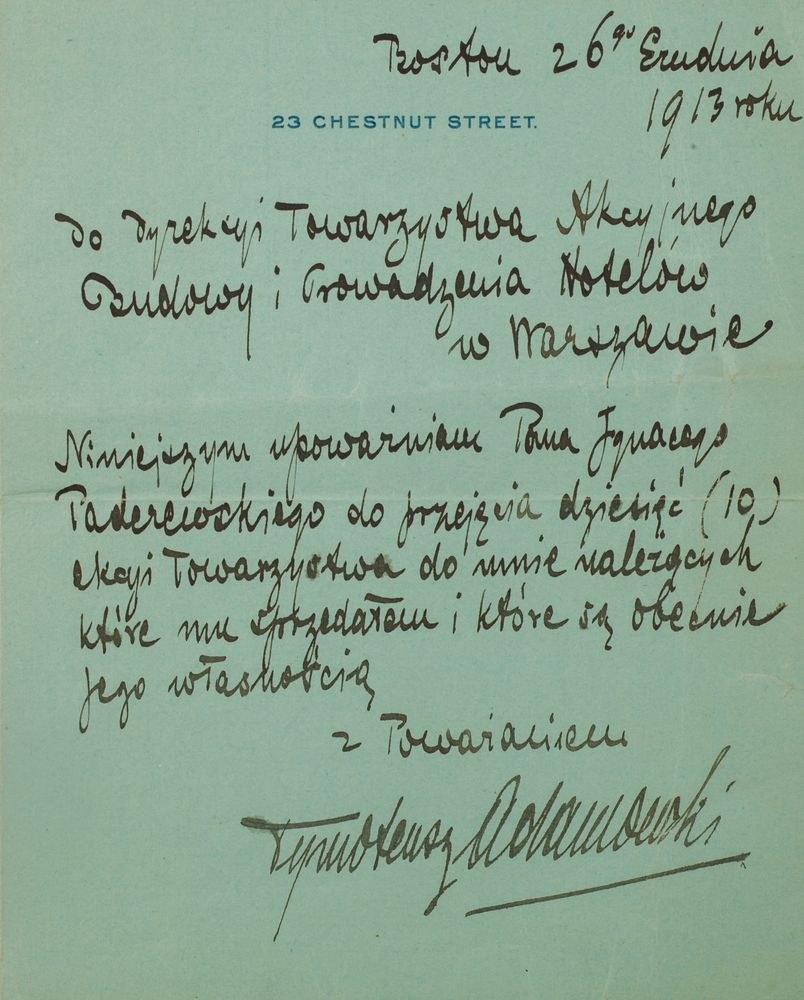 Boston 26go Grudnia
1913 roku
23 CHESTNUT STREET.
Do Dyrekcyi Towarzystwa Akcyjnego
Budowy i Prowadzenia Hotelów
w Warszawie
Niniejszym upoważniam Pana Ignacego
Paderewskiego do przejęcia dziesięć (10)
akcyi Towarzystwa do mnie należących
które mu sprzedałem i które są obecnie
jego własnością
z Poważaniem
Tymoteusz Adamowski